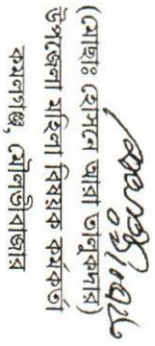 (মোছাঃ হোসনে আরা তালুকদার)
উপজেলা মহিলা বিষয়ক কর্মকর্তা
কমলগঞ্জ, মৌলভীবাজার